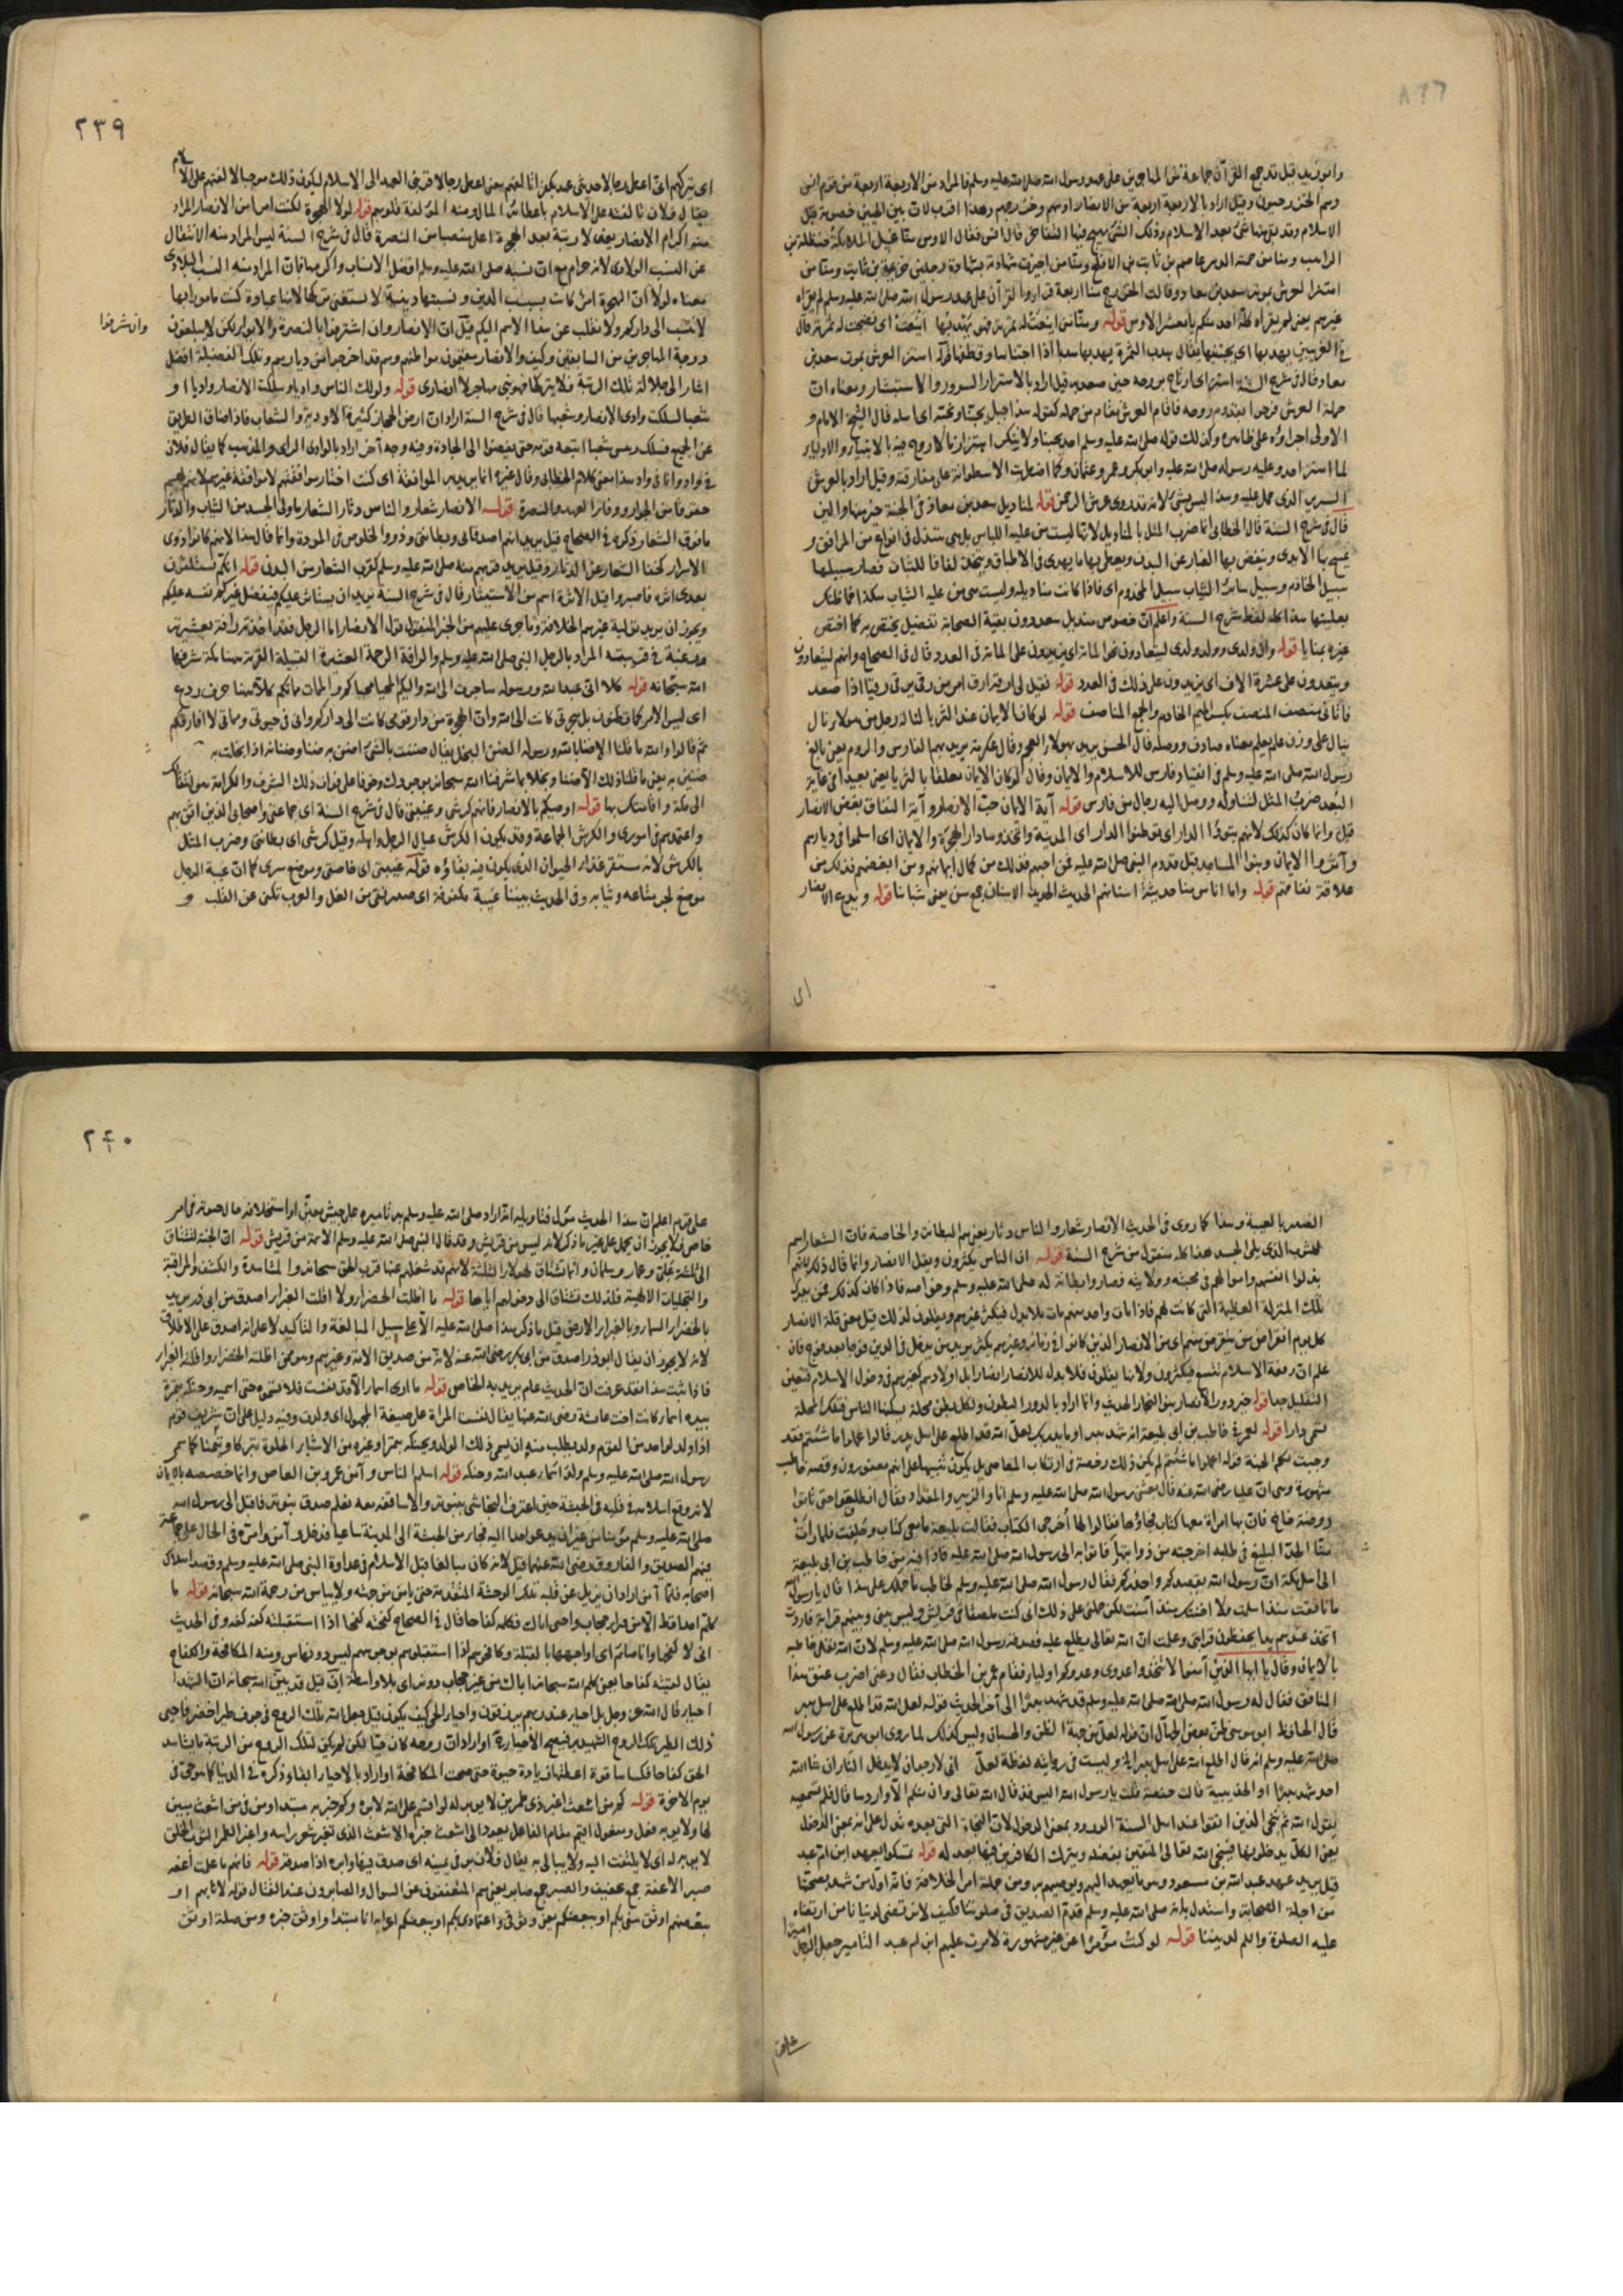 وابو زيد قيل قد جمع القرآن جماعة من المهاجرين على عهد رسول الله صلى الله عليه وسلم فالمراد من الاربعة اربعة من قوم انس
وهم الخزرجيون وقيل اراد بالاربعة اربعة من الانصار اوسهم وخزرجهم وهذا اقرب لان بين الحيين خصومة قبل
الاسلام وقد بقى منها شئ بعد الاسلام
الراهب ومنا من حمته الدبر عاصم بن ثابت بن الافلح ومنا من اجيزت شهادته بشهادة رجلين خزيمة بن ثابت ومنا من
اهتز العرش بموته سعد بن معاذ وقالت الخزرج منا اربعة قرأوا القرآن على عهد رسول الله صلى الله عليه وسلم لم يقرأه
غيرهم يعنى لم يقرأه كله احد منكم يا معشر الاوس قوله ومنا من اينعت له ثمرته فهو يهدبها اينعت اى نضجت له ثمرته قال
معاذ وقال فى شرح السنة اهتز اى ارتاح بروحه حين صعد به قيل اراد بالاهتزاز السرور والاستبشار ومعناه ان
حملة العرش فرحوا بقدوم روحه فاقام العرش مقام من حمله كقوله هذا جبل يحبنا ونحبه اى اهله قال الشيخ الامام و
الاولى اجراؤه على ظاهره وكذلك قوله صلى الله عليه وسلم احد يحبنا ولا ينكر اهتزاز ما لا روح فيه بالانبياء والاولياء
لما اهتز احد وعليه رسوله صلى الله عليه وابو بكر وعمر وعثمان وكما اضطربت الاسطوانة على مفارقته وقيل اراد بالعرش
السرير الذى حمل عليه وهذا ليس بشئ لانه قد روى عرش الرحمن قوله لمناديل سعد بن معاذ فى الجنة خير منها والين
قال فى شرح السنة قال الخطابى انما ضرب المثل بالمناديل لانها ليست من علية اللباس بل هى تبتذل فى انواع من المرافق و
يمسح بها الايدى وينفض بها الغبار عن البدن ويعطى بها ما يهدى فى الاطباق ويتخذ لفافا للثياب فصار سبيلها
سبيل الخادم وسبيل سائر الثياب سبيل المخدوم اى فاذا كانت مناديله وليست هى من علية الثياب هكذا فما ظنك
بعليتها هذا كله لفظ شرح السنة واعلم ان خصوص منديل سعد دون بقية الصحابة تفضيل يختص به كما اختص
غيره بمنايا قوله وان ولدى وولد ولدى ليتعادون نحو المائة اى يزيدون على المائة فى العدد قال فى الصحاح وانهم ليتعادون
ويتعددون على عشرة الاف اى يزيدون على ذلك فى العدد قوله فقيل لى ارقه ارق امر من رقى يرقى رقيا اذا صعد
فاتانى منصف المنصف بكسر الميم الخادم والجمع المناصف قوله لو كان الايمان عند الثريا لناله رجل من هؤلاء نال
ينال على وزن علم يعلم بمعناه صادف ووصله قال الحسن يريد بهؤلاء العجم وقال عكرمة يريد بهم الفارس والروم يعنى بالغ
رسول الله صلى الله عليه وسلم فى انقياد فارس للاسلام والايمان وقال لو كان الايمان معلقا بالثريا يعنى بعيدا فى غاية
البعد ضرب المثل لتناوله ووصل اليه رجال من فارس قوله آية الايمان حب الانصار وآية النفاق بغض الانصار
قيل وانما كان كذلك لانهم تبوؤا الدار اى توطنوا الدار اى المدينة واتخذوها دار الهجرة والايمان اى اسلموا فى ديارهم
وآثروا الايمان وبنوا المساجد قبل قدوم النبى صلى الله عليه فمن احبهم فذلك من كمال ايمانهم ومن ابغضهم فذلك من
علامة نفاقهم قوله واما اناس منا حديثة اسنانهم الحديث الحديد الاسنان جمع سن يعنى شبابا قوله ويدع الانصار
اى
٢٣٩
اى يتركهم
يقال فلان تالفته على الاسلام باعطائه المال ومنه المؤلفة قلوبهم قوله لولا الهجرة لكنت امرا من الانصار المراد
منه اكرام الانصار يعنى لا رتبة بعد الهجرة اعلى منصبا من النصرة قال فى شرح السنة ليس المراد منه الانتقال
عن النسب الولادى لانه حرام مع ان نسبه صلى الله عليه وسلم افضل الانساب واكرمها فان المراد منه النسب البلادى
معناه لولا ان الهجرة امر كانت بسبب الدين ونسبتها دينية لا يستغنى تركها لانها عبادة كنت مامورا بها
لانتسب الى داركم ولانتقلت عن هذا الاسم اليكم قيل ان الانصار وان اشترفوا بالنصرة والايواء لكن لا يبلغون
وان شرفوا
درجة المهاجرين من السابقين وكيف والانصار مقيمون بمواطنهم وهم قد اخرجوا من ديارهم وتلك الفضيلة افضل
اشار الى جلالة تلك الرتبة فلا يتركها فهو نبى مهاجر لا انصارى قوله ولو سلك الناس واديا وسلكت الانصار واديا او
شعبا لسلكت وادى الانصار وشعبها قال فى شرح السنة اراد ان ارض الحجاز كثيرة الاودية والشعاب فاذا ضاق الطريق
عن الجميع فسلك رئيس شعبا اتبعه قومه حتى يفضوا الى الجادة وفيه وجه آخر اراد بالوادى الراى والمذهب كما يقال فلان
فى واد وانا فى واد هذا معنى كلام الخطابى
قوله الانصار شعار والناس دثار الشعار ما ولى الجسد من الثياب والدثار
ما فوق الشعار ذكره فى الصحاح قيل يريد انهم اصدقائى وبطانتى وذووا الخلوص فى المودة وانما قال هذا لانهم كانوا ذوى
قوله انكم ستلقون
بعدى اثرة فاصبروا قيل الاثرة اسم من الاستيثار قال فى شرح السنة يريد ان يستأثر عليكم فيفضل غيركم نفسه عليكم
ورغبة فى قريته المراد بالرجل النبى صلى الله عليه وسلم والرافة الرحمة العشيرة القبيلة القرية هنا مكة شرفها
الله سبحانه قوله كلا انى عبد الله ورسوله هاجرت الى الله واليكم المحيا محياكم والممات مماتكم كلا هنا حرف ردع
اى ليس الامر كما تظنون بل هجرتى كانت الى الله وان الهجرة من دار قومى كانت الى داركم وانى فى حيوتى ومماتى لا افارقكم
ثم قالوا والله ما قلنا الا ضنا بالله ورسوله الضن البخل يقال ضننت بالشئ اضن به ضنا وضنانة اذا بخلت به
قوله اوصيكم بالانصار فانهم كرشى وعيبتى قال فى شرح السنة اى جماعتى واصحابى الذين اثق بهم
واعتمدهم فى امورى والكرش الجماعة وقد يكون الكرش عيال الرجل واهله وقيل كرشى اى بطانتى وضرب المثل
بالكرش لانه مستقر غذاء الحيوان الذى يكون فيه بقاؤه قوله عيبتى اى خاصتى وموضع سرى كما ان عيبة الرجل
موضع لحر متاعه وثيابه وفى الحديث بيننا عيبة مكفوفة اى صدر نقى من الغل والعرب تكنى عن القلب و
الصدر بالعيبة وهذا كما روى فى الحديث الانصار شعار والناس دثار يعنى هم البطانة والخاصة فان الشعار اسم
للثوب الذى يلى الجسد هذا كله منقول من شرح السنة قوله ان الناس يكثرون ويقل الانصار وانما قال ذلك لانهم
بذلوا انفسهم واموالهم فى محبته وولايته فصاروا بطانة له صلى الله عليه وسلم وخواصه
تلك المنزلة العظيمة التى كانت لهم فاذا مات واحد منهم مات بلا بدل فيكثر غيرهم ويقلون لذلك قيل معنى قلة الانصار
علم ان رقعة الاسلام تتسع فيكثرون ولا بنا يقلون فلا بدل للانصار انصار
التقليل جدا قوله خير دور الانصار بنو النجار الحديث وانما اراد بالدور البطون ولكل بطن محلة يسكنها الناس فتلك المحلة
تسمى دارا قوله لعمر فى حاطب بن ابى بلتعة انه شهد بدرا وما يدريك لعل الله قد اطلع على اهل بدر قال اعملوا ما شئتم فقد
وجبت لكم الجنة قوله اعملوا ما شئتم لم يكن ذلك رخصة فى ارتكاب المعاصى بل يكون تنبيها على انهم مغفورون وقصة حاطب
مشهورة وهى ان عليا رضى الله عنه قال بعثنى رسول الله صلى الله عليه وسلم انا والزبير والمقداد فقال انطلقوا حتى تاتوا
روضة خاخ فان بها امراة معها كتاب فجاؤها فقالوا لها اخرجى الكتاب فقالت بلتعة ما معى كتاب وحلفت فلما رات
منا الجد البليغ فى طلبه اخرجته من ذوائبها فاتوا به الى رسول الله صلى الله عليه فاذا فيه من حاطب بن ابى بلتعة
الى اهل مكة ان رسول الله يقصدكم فقال رسول الله صلى الله عليه وسلم لحاطب ما حملك على هذا قال يا رسول الله
ما نافقت منذ اسلمت ولا خنتك منذ آمنت لكن حملنى على ذلك انى كنت ملصقا فى قريش وليس بينى وبينهم قرابة فاردت
اتخذ عندهم يدا يحفظون قرابتى وعلمت ان الله تعالى يطلع عليه فصدقه رسول الله صلى الله عليه وسلم لان الله تعالى خاطبه
بالايمان وقال يا ايها الذين آمنوا لا تتخذوا عدوى وعدوكم اولياء فقام عمر بن الخطاب فقال دعنى اضرب عنق هذا
المنافق فقال له رسول الله صلى الله عليه وسلم قد شهد بدرا الى آخر الحديث قوله لعل الله قد اطلع على اهل بدر
قال الحافظ ابو موسى ظن بعض الجهال ان قوله لعل من جهة الظن والحسبان وليس كذلك لما روى ابو هريرة عن رسول الله
صلى الله عليه وسلم انه قال اطلع الله على اهل بدر الخ وليست فى روايته لفظة لعل انى لارجو ان لا يدخل النار ان شاء الله
احد شهد بدرا او الحديبية قالت حفصة قلت يا رسول الله اليس قد قال الله تعالى وان منكم الا واردها قال فلم تسمعيه
يقول الله ثم ننجى الذين اتقوا عند اهل السنة الورود بمعنى الدخول لان النجاة التى بعده تدل على انه بمعنى الدخول
يعنى الكل يدخلونها فينجى الله تعالى المتقين بفضله ويترك الكافرين فيها بعدله قوله تمسكوا بعهد ابن ام عبد
قيل يريد عهد عبد الله بن مسعود وهو ما يعهد اليهم ويوصيهم به ومن جملته امر الخلافة فانه اول من شهد بصحتها
من اجلة الصحابة واستدل بانه صلى الله عليه وسلم قدم الصديق فى صلوتنا فكيف لا نرتضى لدنيانا من ارتضاه
عليه الصلوة والسلام لديننا قوله لو كنت مؤمرا عن غير مشورة لامرت عليهم ابن ام عبد التامير جعل الرجل اميرا
على قوم
٢٤٠
على قوم اعلم ان هذا الحديث مؤول فتاويله انه اراد صلى الله عليه وسلم به تاميره على جيش معين او استخلافه حال حيوته فى امر
خاص فلا يجوز ان يحمل على غير ما ذكر لانه ليس من قريش وقد قال النبى صلى الله عليه وسلم الائمة من قريش قوله ان الجنة تشتاق
الى ثلثة على وعمار وسلمان وانما تشتاق لهؤلاء الثلثة لانهم قد شغلهم عنها قرب الحق سبحانه والمشاهدة والكشف والمراقبة
والتجليات الالهية فلذلك تشتاق الى دخولهم اياها قوله ما اظلت الخضراء ولا اقلت الغبراء اصدق من ابى ذر يريد
بالخضراء السماء وبالغبراء الارض قيل ما ذكر هذا صلى الله عليه الا على سبيل المبالغة والتاكيد لا على انه اصدق على الاطلاق
لانه لا يجوز ان يقال ابو ذر اصدق من ابى بكر رضى الله عنه لانه من صديق الامة وغيرهم وهو ممن اظلته الخضراء واقلته الغبراء
فاذا ثبت هذا فقد عرفت ان الحديث عام يريد به الخاص قوله ما ارى اسماء الا قد نفست فلا تسموه حتى اسميه وحنكه بتمرة
بيده اسماء كانت اخت عائشة رضى الله عنها يقال نفست المراة على صيغة المجهول اى ولدت وفيه دليل على ان شريف قوم
اذا ولد لواحد من القوم ولد يطلب منه ان يسمى ذلك الولد ويحنكه بتمر او غيره من الاشياء الحلوة تبركا وتيمنا كما سمى
رسول الله صلى الله عليه وسلم ولد اسماء عبد الله وحنكه قوله اسلم الناس وآمن عمرو بن العاص وانما خصصه بالايمان
لانه وقع اسلامه فى قلبه فى الحبشة حين اعترف النجاشى بنبوته
صلى الله عليه وسلم مؤمنا من غير ان يدعو احد اليه فجاء من الحبشة الى المدينة ساعيا فدخل وآمن وامره فى الحال على جماعة
فيهم الصديق والفاروق رضى الله عنهما قيل لانه كان مبالغا قبل الاسلام فى عداوة النبى صلى الله عليه وسلم وقصد اهلاك
اصحابه فلما آمن اراد ان يزيل عن قلبه تلك الوحشة المتقدمة حتى يامن من جهته ولا ييأس من رحمة الله سبحانه قوله ما
كلم احدا قط الا من وراء حجاب واحيى اباك فكلمه كفاحا قال فى الصحاح كفحته كفحا اذا استقبلته كفة كفة وفى الحديث
انى لا كفحها وانا صائم اى اواجهها بالقبلة وكافحوهم اذا استقبلوهم بوجوههم ليس دونها ترس ومنه المكافحة والكفاح
يقال لقيته كفاحا يعنى كلم الله سبحانه اباك من غير حجاب دونه اى بلا واسطة فان قيل قد بين الله سبحانه ان الشهداء
احياء قال الله عز وجل بل احياء عند ربهم يرزقون واحياء الحى كيف يكون قيل جعل الله تلك الروح فى جوف طير اخضر فاحيى
ذلك الطير بتلك الروح الشهيد فيصح الاحياء به او اراد ان روحه كان حيا لكن لم يكن لتلك الروح من الرتبة ما يشاهد
الحق كفاحا فكساها قوة اعطتها زيادة حيوة حتى صحت المكافحة او اراد بالاحياء ابقاء ذكره فى الدنيا كما هو حى فى
يوم الاخرة قوله كم من اشعث اغبر ذى طمرين لا يؤبه له لو اقسم على الله لابره وكم خبرية مبتدا ومن فى من اشعث يبين
لها ولا يؤبه فعل ومفعول اقيم مقام الفاعل يعود الى اشعث خبره الاشعث الذى تغير شعر راسه واغبر الطمر الثوب الخلق
لا يؤبه له اى لا يلتفت اليه ولا يبالى به يقال فلان بر فى يمينه اى صدق فيها وابره اذا صدقه قوله فانهم ما علمت اعفة
صبر الاعفة جمع عفيف والصبر جمع صابر يعنى هم المتعففون عن السؤال والصابرون عند القتال قوله لانا بهم او
ببعضهم اوثق منى بكم او ببعضكم يعنى وثوقى واعتمادى بكم او ببعضكم لو ابه انا مبتدا واوثق خبره ومن صلة اوثق